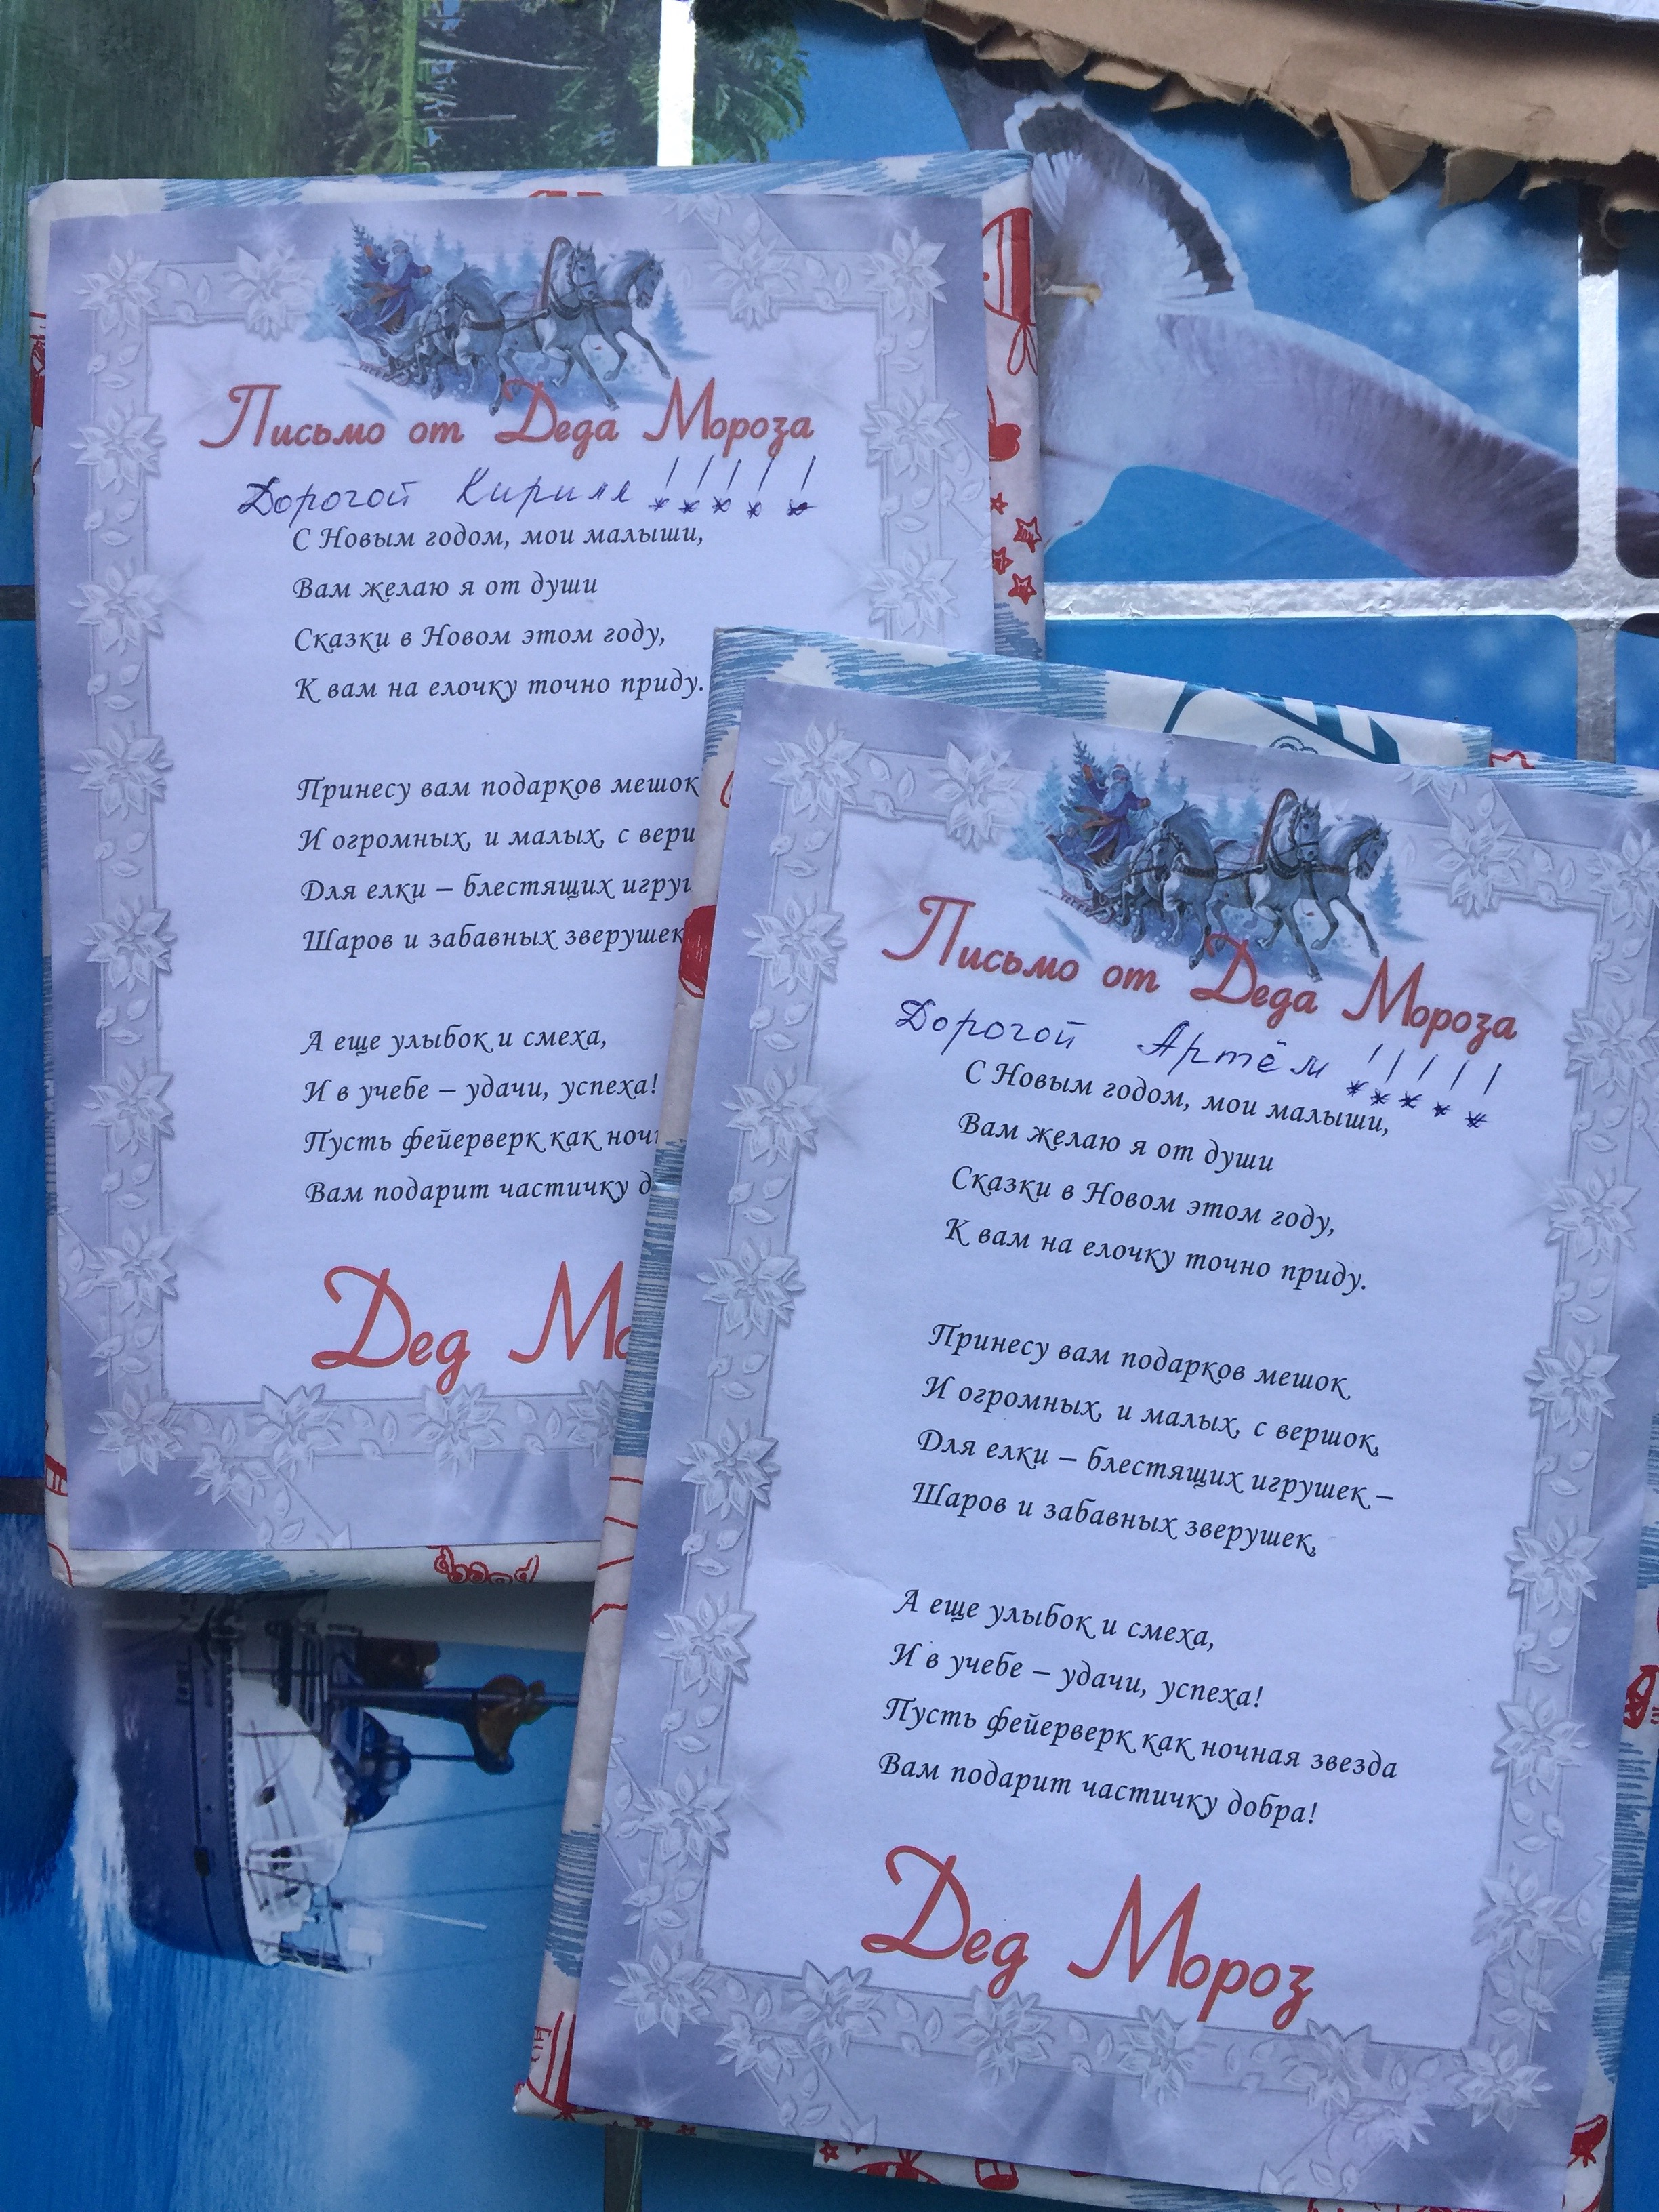 Письмо от Деда Мороза
Дорогой Кирилл !!!!!
С Новым годом, мои малыши,
Вам желаю я от души
Сказки в Новом этом году,
К вам на елочку точно приду.
Принесу вам подарков мешок
И огромных, и малых, с
Для елки – блестящих
Шаров и забавных зверушек
А еще улыбок и смеха,
И в учебе – удачи, успеха!
Пусть фейерверк как
Вам подарит частичку
Дед
Письмо от Деда Мороза
Дорогой Артём !!!!!
С Новым годом, мои малыши,
Вам желаю я от души
Сказки в Новом этом году,
К вам на елочку точно приду.
Принесу вам подарков мешок
И огромных, и малых, с вершок,
Для елки – блестящих игрушек –
Шаров и забавных зверушек,
А еще улыбок и смеха,
И в учебе – удачи, успеха!
Пусть фейерверк как ночная звезда
Вам подарит частичку добра!
Дед Мороз